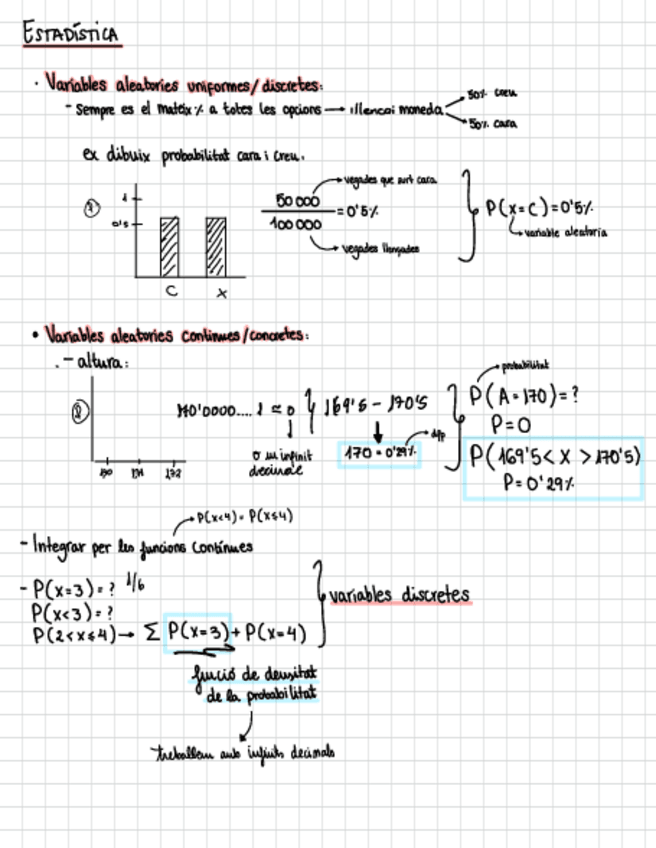 ESTADÍSTICA
· Variables aleatories uniformes/discretes:
- Sempre es el mateix % a totes les opcions → illencai moneda
50% creu
50% cara
ex dibuix probabilitat cara i creu.
1
1
0'5
C X
50 000
100 000
= 0'5%
vegades que surt cara
vegades llençades
P(x=C)=0'5%
variable aleatoria
• Variables aleatories continues/concretes:
- altura:
2
170'0000.... 1 ≈ 0
o un infinit
decimale
169'5 - 170'5
170 = 0'29%
probabilitat
P(A=170)=?
P=0
P(169'5 < X > 170'5)
P=0'29%
P(x<4) = P(x≤4)
- Integrar per les funcions continues
- P(x=3)=? 1/6
P(x<3)=?
P(2<x≤4) → Σ P(x=3) + P(x=4)
variables discretes
funció de densitat
de la probabilitat
treballem amb infinits decimals